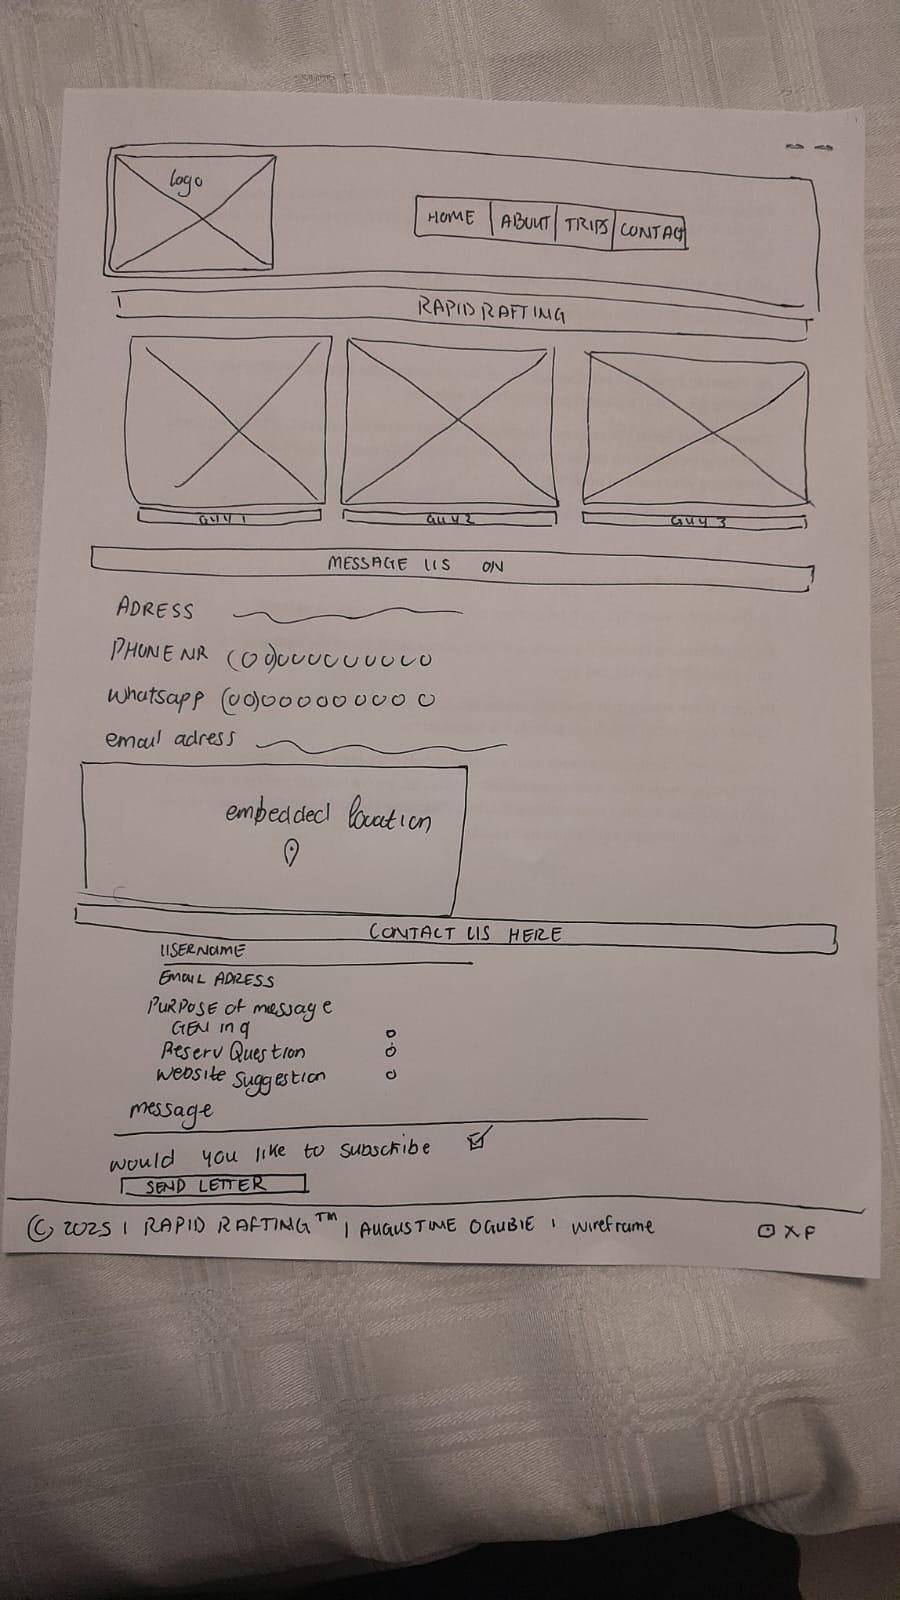 logo
HOME ABOUT TRIPS CONTACT
RAPID RAFTING
GUY 1 GUY 2 GUY 3
MESSAGE US ON
ADRESS
PHONE NR (00)000000000
Whatsapp (00)00000000 0
email adress
embedded location
CONTACT US HERE
USERNAME
EMAIL ADRESS
PURPOSE of message
GEN inq
Reserv Question
Website Suggestion
message
would you like to subscribe
SEND LETTER
© 2025 | RAPID RAFTING™ | AUGUSTINE OGUBIE | Wireframe X F